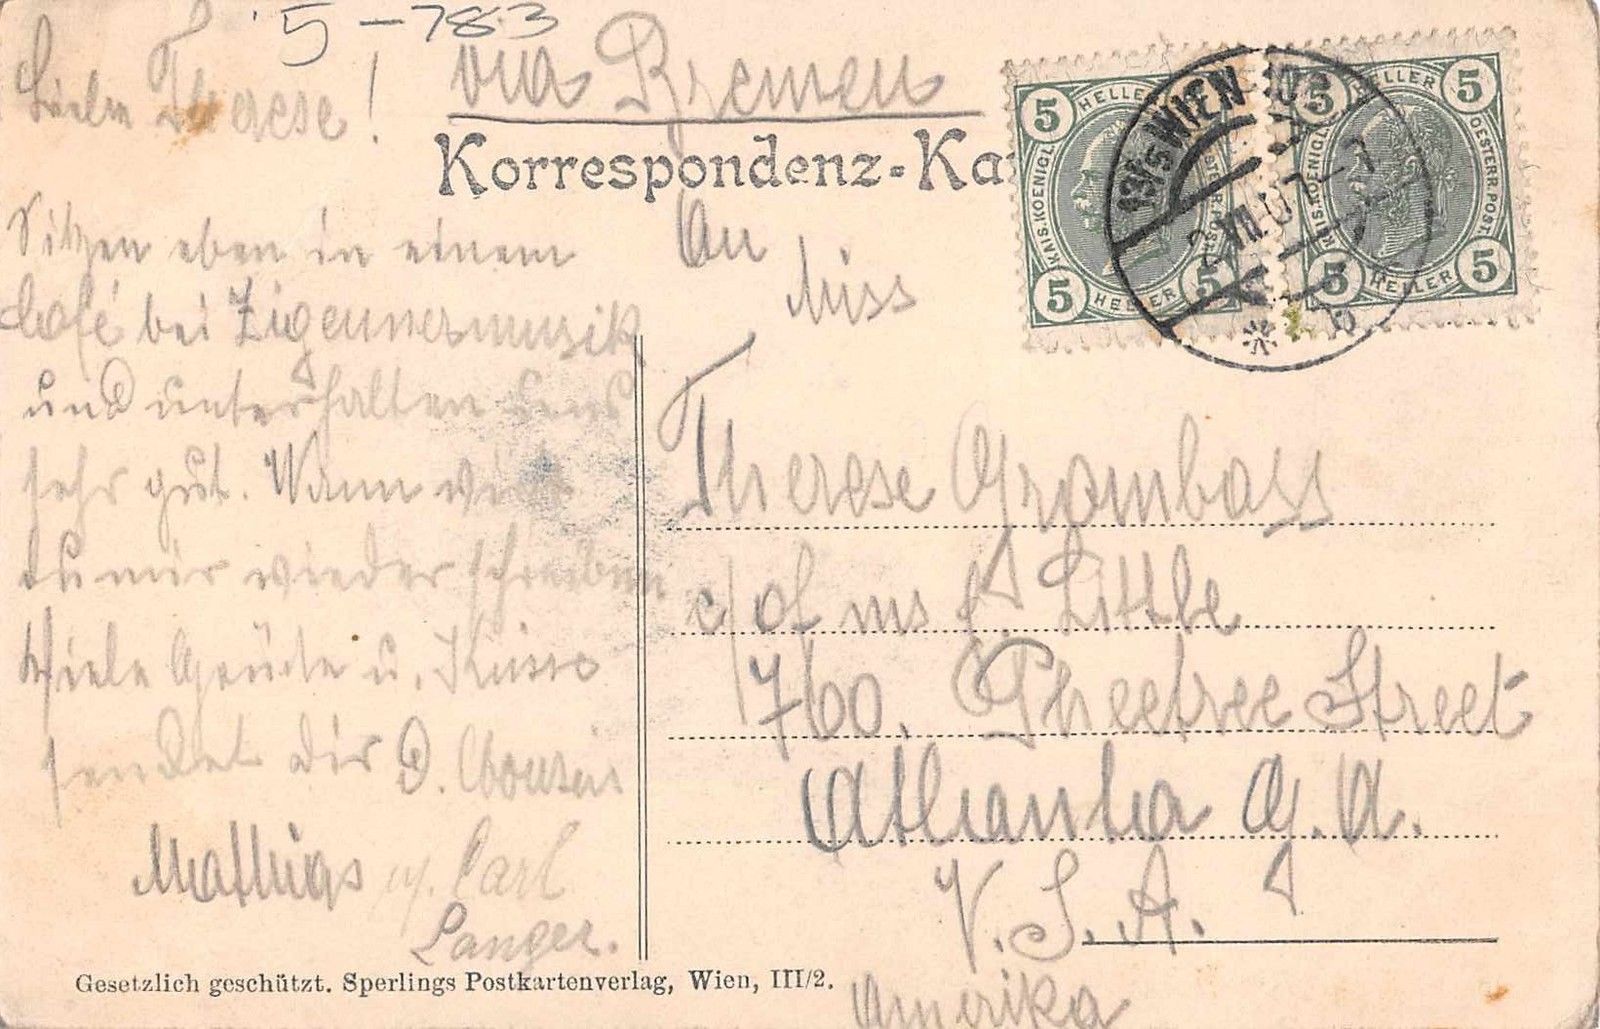 5-783
Liebe Therese!
via Bremen
Korrespondenz-Ka
Sitzen eben in einem
Café bei Zigeunermusik
und unterhalten uns
sehr gut. Wann wirst
du mir wieder schreiben
Viele Grüße u. Küsse
sendet dir D. Cousin
Mathias u. Carl
Langer.
An
Miss
Therese Grombass
c/of
Little
760. Pheetree Street
Athlanta G.A.
V.S.A.
Amerika
5 HELLER 5
KAIS. KOENIGL.
5 HELLER 5
5 HELLER 5
KAIS. KOENIGL.
OESTERR. POST.
5 HELLER 5
13/5 WIEN
VII.07
Gesetzlich geschützt. Sperlings Postkartenverlag, Wien, III/2.